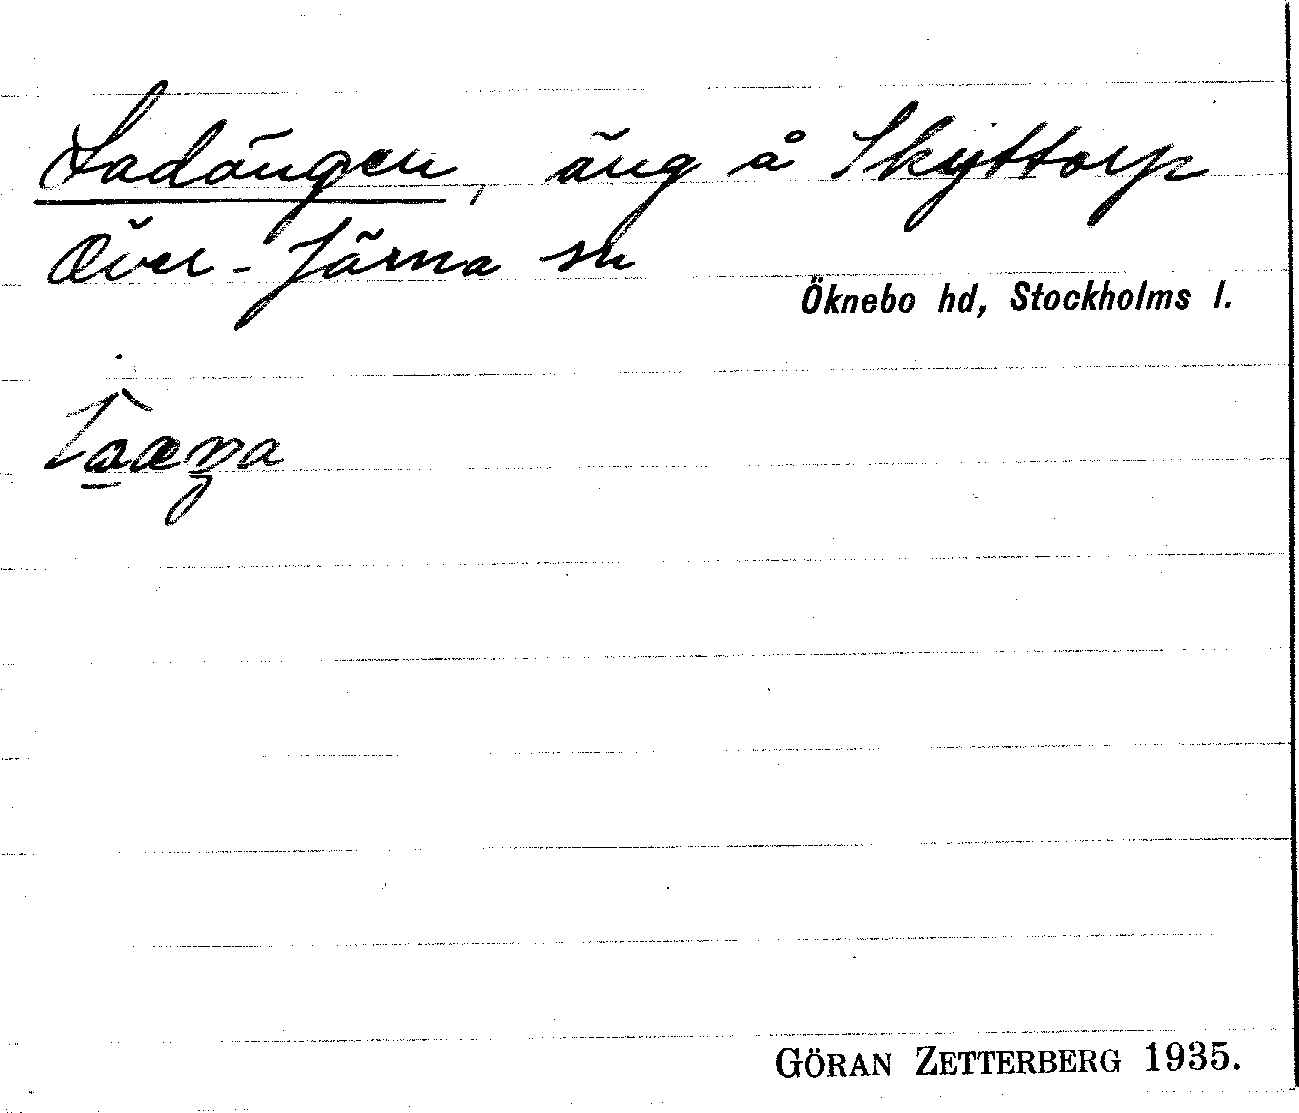 Ladängen, äng å Skyttorp
Över-Järna sn
Öknebo hd, Stockholms l.
GÖRAN ZETTERBERG 1935.